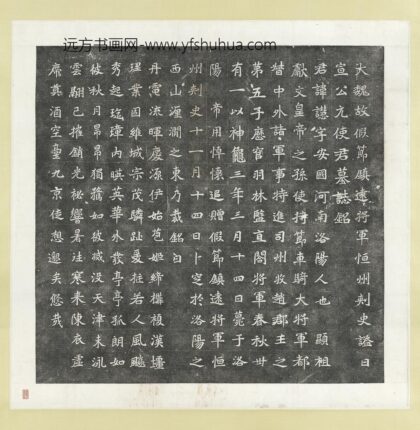 远方书画网-www.yfshuhua.com
大魏故假節鎮遠將軍恒州刺史謚曰
宣公元使君墓誌銘
君諱譿字安國河南洛陽人也 顯祖
獻文皇帝之孫使持節車騎大將軍都
督中外諸軍事特進司州牧趙郡王之
第五子歷官羽林監直閤將軍春秋卅
有一以神龜三年三月十四日薨于洛
陽 帝用悼懷追贈假節鎮遠將軍恒
州刺史十一月十四日卜窆於洛陽之
西山瀍澗之東乃裁銘曰
丹電流暉慶源伊始苞姬締構複漢壃
理業固維城宗茂麟趾爰挺若人風飈
秀起琁璋內暎英華外發亭亭孤朗如
彼秋月昂昂獨鶩如彼滅没天津未泳
雲翮已摧銷光祕響暑往寒來陳衣虛
席奠酒空臺九京徒想邈矣悠哉